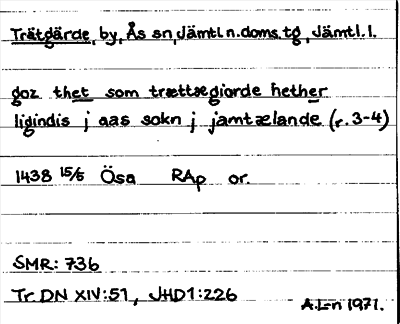 Trätgärde, by, Ås sn, Jämtl n. doms. tg, Jämtl. l.
goz thet som trættægiorde hether
ligindis j aas sokn j jamtælande (r. 3-4)
1438 15/5 Ösa RAp or.
SMR: 736
Tr DN XIV:51, JHD1:226
A.L-n 1971.